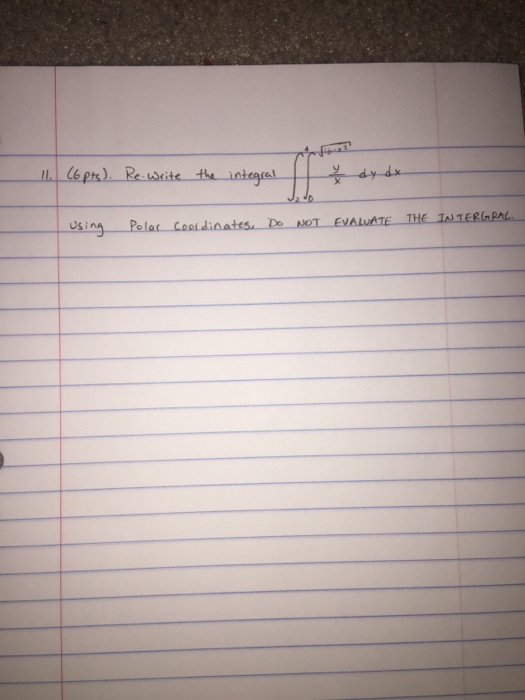 11. (6 pts). Re-write the integral ∫₂⁴ ∫₀^√(16-x²) y/x dy dx
Using Polar Coordinates. DO NOT EVALUATE THE INTERGRAL.